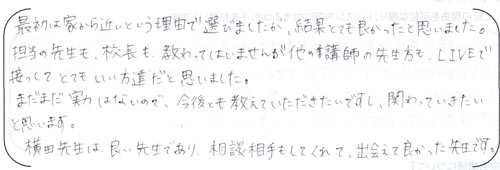 最初は家から近いという理由で選びましたが、結果とても良かったと思いました。
担当の先生も、校長も、教わってはいませんが他の講師の先生方も、LIVEで
接っしてとてもいい方達だと思いました。
まだまだ実力はないので、今後とも教えていただきたいですし、関わっていきたい
と思います。
横田先生は、良い先生であり、相談相手もしてくれて、出会えて良かった先生です。